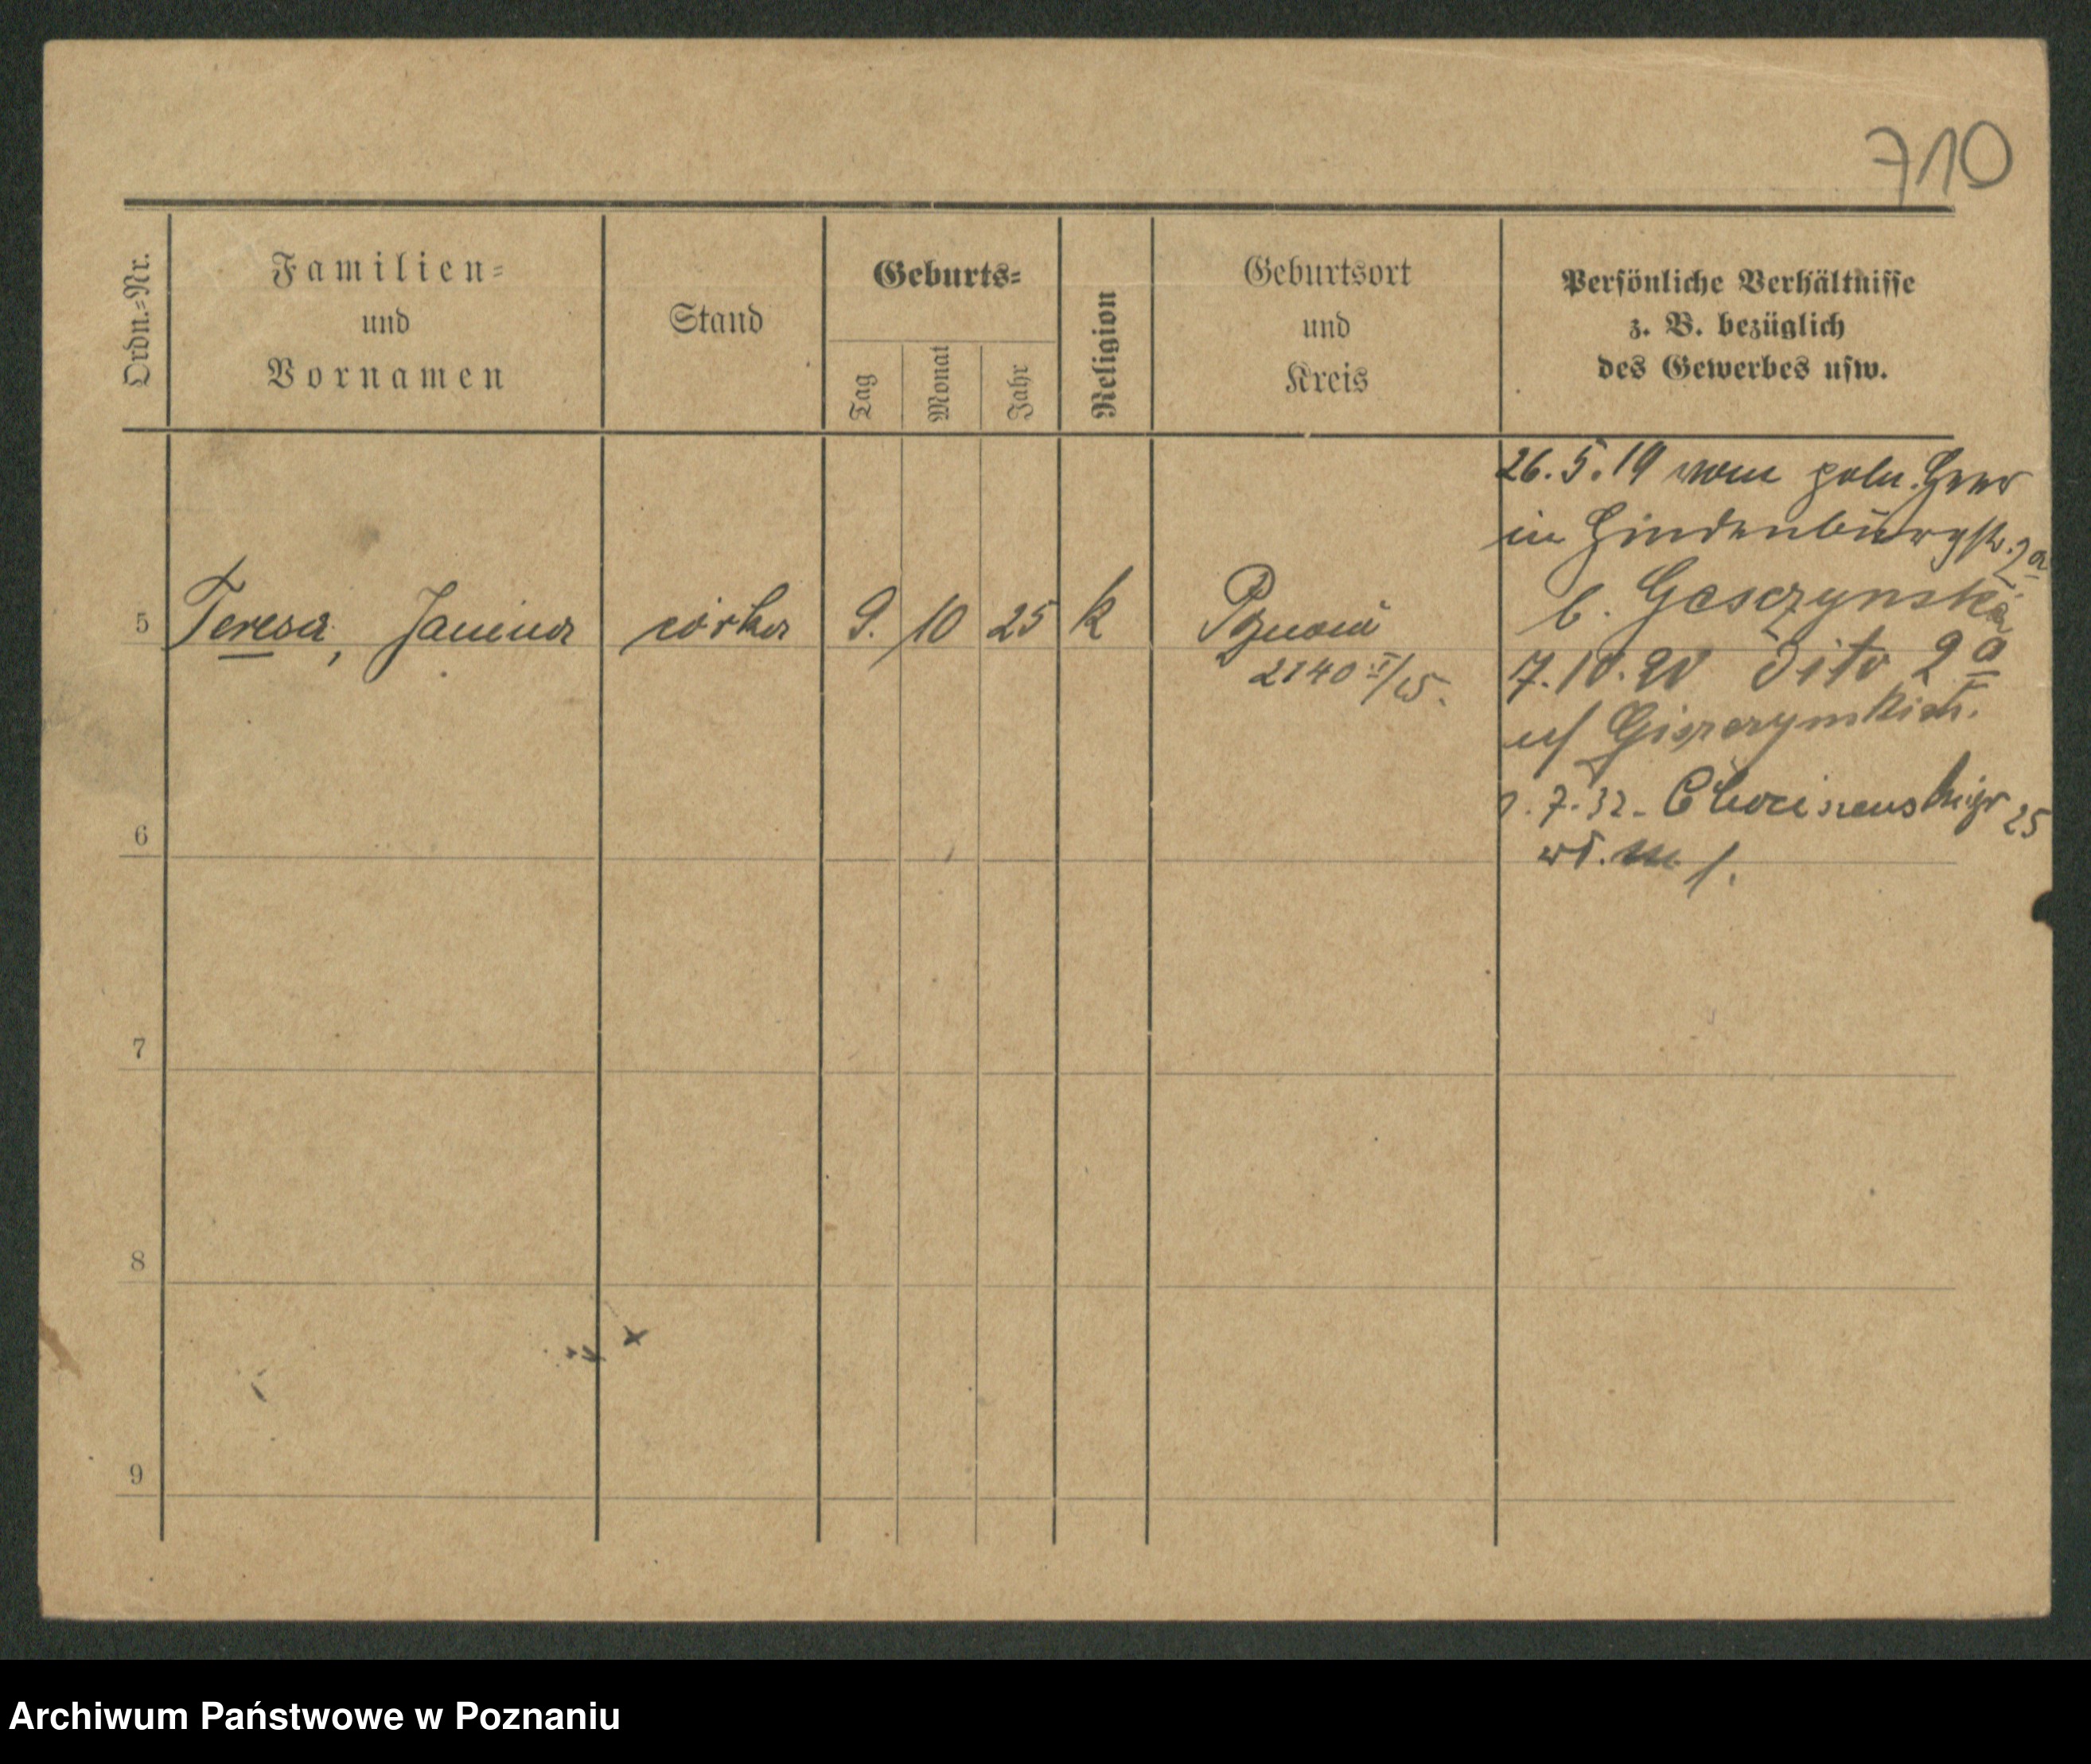 710
Ordn.=Nr.
Familien=
und
Vornamen
Stand
Geburts=
Tag
Monat
Jahr
Religion
Geburtsort
und
Kreis
Persönliche Verhältnisse
z. B. bezüglich
des Gewerbes usw.
26.5.19 vom poln. Heer
in Hindenburgstr. 2a
b. Gesczynska
5 Teresa, Janina córka 9. 10 25 k Poznań
2140 II/25.
7.10.20 dito 2a
u/
7.32 - 25
6
7
8
9
Archiwum Państwowe w Poznaniu